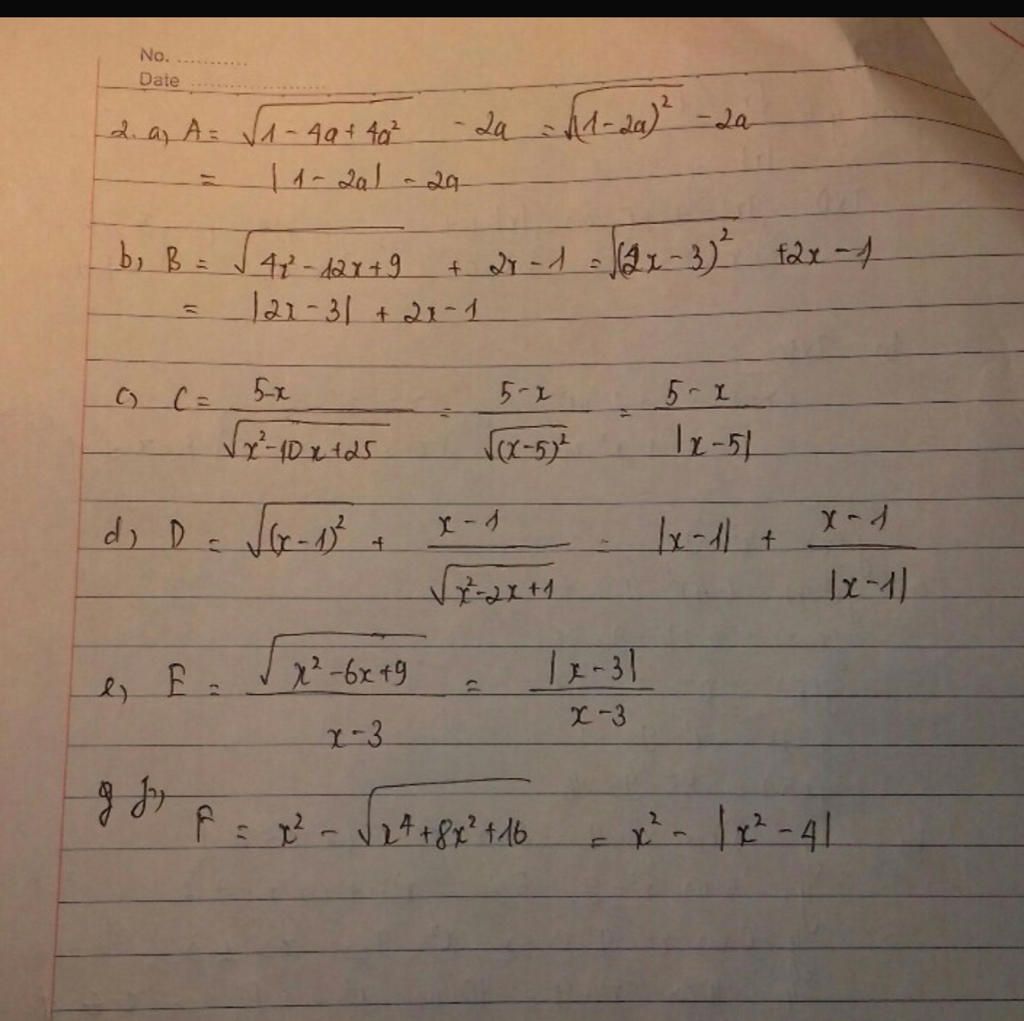 No. ...........
Date ........................
2. a, A = √(1 - 4a + 4a²) - 2a = √((1-2a)²) - 2a
= |1 - 2a| - 2a
b, B = √(4x² - 12x + 9) + 2x - 1 = √((2x - 3)²) + 2x - 1
= |2x - 3| + 2x - 1
c, C = (5-x)/√(x² - 10x + 25) = (5 - x)/√((x-5)²) = (5 - x)/|x - 5|
d, D = √((x - 1)²) + (x - 1)/√(x² - 2x + 1) = |x - 1| + (x - 1)/|x - 1|
e, E = √(x² - 6x + 9)/(x - 3) = |x - 3|/(x - 3)
g f,
F = x² - √(x⁴ + 8x² + 16) = x² - |x² - 4|